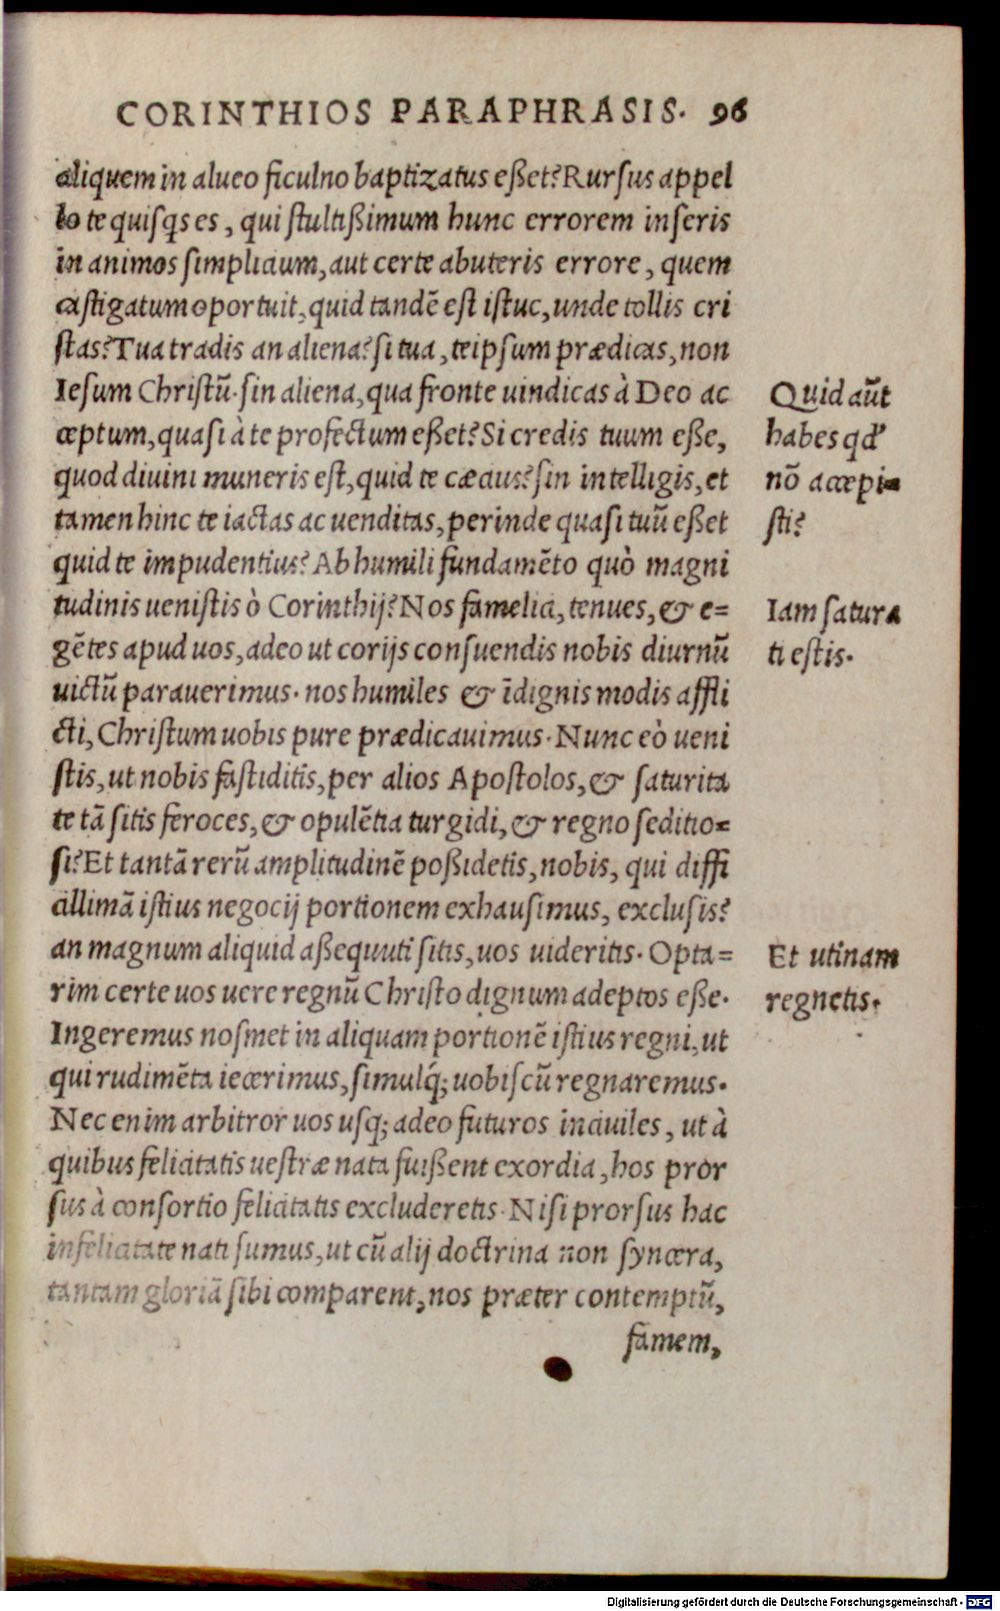 CORINTHIOS PARAPHRASIS. 96
aliquem in alueo ficulno baptizatus eßet? Rursus appel
lo te quisqs es, qui stultißimum hunc errorem inseris
in animos simplicium, aut certe abuteris errore, quem
castigatum oportuit, quid tandē est istuc, unde tollis cri
stas? Tua tradis an aliena? si tua, teipsum prædicas, non
Iesum Christū. sin aliena, qua fronte uindicas à Deo ac
ceptum, quasi à te profectum eßet? Si credis tuum eße,
quod diuini muneris est, quid te cæcius? sin intelligis, et
tamen hinc te iactas ac uenditas, perinde quasi tuū eßet
quid te impudentius? Ab humili fundamēto quò magni
tudinis uenistis ò Corinthij? Nos famelici, tenues, & e=
gētes apud uos, adeo ut corijs consuendis nobis diurnū
uictū parauerimus. nos humiles & īdignis modis affli
cti, Christum uobis pure prædicauimus. Nunc eò ueni
stis, ut nobis fastiditis, per alios Apostolos, & saturita
te tā sitis feroces, & opulētia turgidi, & regno seditio=
si? Et tantā rerū amplitudinē poßidetis, nobis, qui diffi
cillimā istius negocij portionem exhausimus, exclusis?
an magnum aliquid aßequuti sitis, uos uideritis. Opta=
rim certe uos uere regnū Christo dignum adeptos eße.
Ingeremus nosmet in aliquam portionē istius regni, ut
qui rudimēta iecerimus, simulq́; uobiscū regnaremus.
Nec enim arbitror uos usq; adeo futuros inciuiles, ut à
quibus felicitatis uestræ nata fuißent exordia, hos pror
sus à consortio felicitatis excluderetis. Nisi prorsus hac
infelicitate nati sumus, ut cū alij doctrina non syncera,
tantam gloriā sibi comparent, nos præter contemptū,
famem,
Quid aūt
habes qd'
nō accepi=
sti?
Iam satura
ti estis.
Et utinam
regnetis.
Digitalisierung gefördert durch die Deutsche Forschungsgemeinschaft - DFG